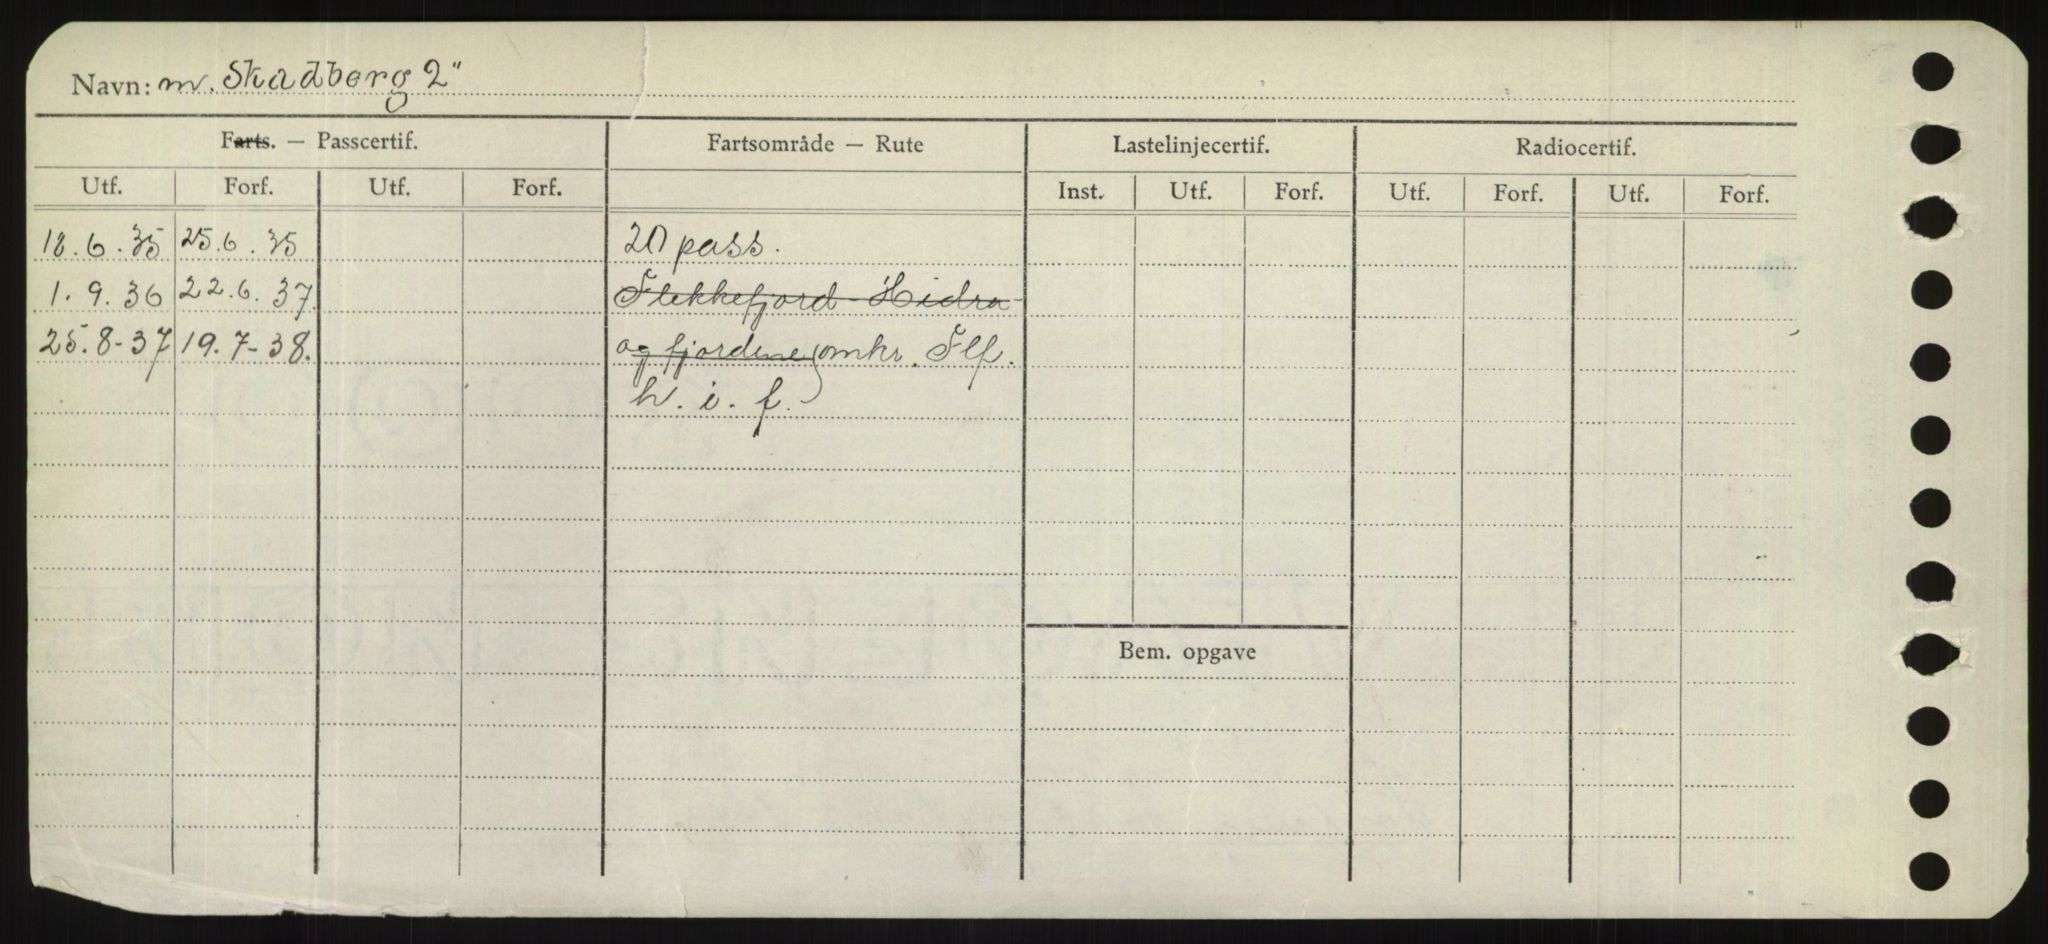 Navn: m. Skadberg 2"
Farts. — Passcertif. Fartsområde — Rute Lastelinjecertif. Radiocertif.
Utf. Forf. Utf. Forf. Inst. Utf. Forf. Utf. Forf. Utf. Forf.
18.6.35 25.6.35 20 pass.
1.9.36 22.6.37 Flekkefjord - Hidra -
25.8-37 19.7-38. og fjordene omkr. Flf.
h. i. f.
Bem. opgave